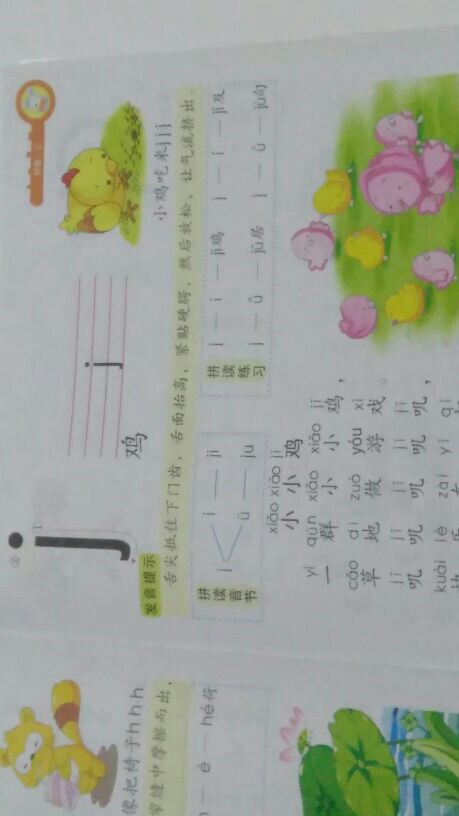 j
j
鸡
小鸡吃米jjj
发音提示
舌尖抵住下门齿，舌面抬高，紧贴硬腭，然后放松，让气流挤出。
拼读音节
j
i — ji
ü — ju
拼读练习
j — ī — jī鸡 j — í — jí及
j — ǖ — jū居 j — ù — jù句
xiǎo xiǎo jī
小小鸡
yì qún xiǎo xiǎo jī
一群小小鸡，
cǎo dì zuò yóu xì
草地做游戏。
jī jī jī jī jī
叽叽叽叽叽，
kuài lè zài yì qǐ
像把椅子h h h
窄缝中摩擦而出，
é — hé荷